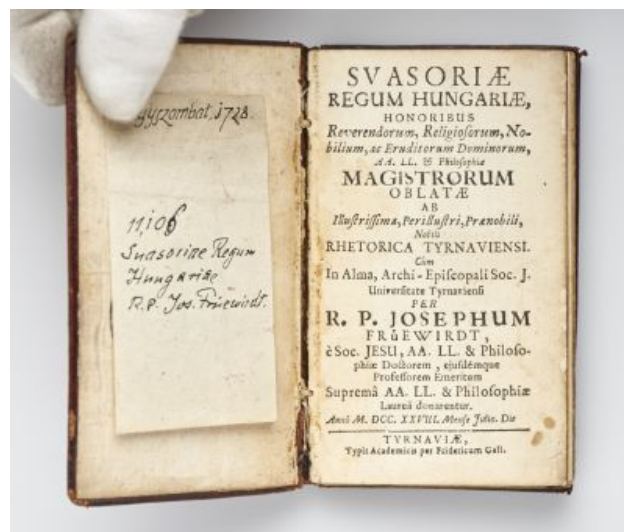 gyszombat, 1728.
11,106
Suasoriae Regum
Hungariae
R. P. Jos. Früewirdt.
SVASORIÆ
REGUM HUNGARIÆ,
HONORIBUS
Reverendorum, Religiosorum, No-
bilium, ac Eruditorum Dominorum,
AA. LL. & Philosophiæ
MAGISTRORUM
OBLATÆ
AB
Illustrissima, Perillustri, Prænobili,
Nobili
RHETORICA TYRNAVIENSI.
Cùm
In Alma, Archi-Episcopali Soc. J.
Universitate Tyrnaviensi
PER
R. P. JOSEPHUM
FRůEWIRDT,
è Soc. JESU, AA. LL. & Philoso-
phiæ Doctorem, ejusdémque
Professorem Emeritum
Supremâ AA. LL. & Philosophiæ
Laureâ donarentur.
Anno M. DCC. XXVIII. Mense Julio. Die
TYRNAVIÆ,
Typis Academicis per Fridericum Gall.